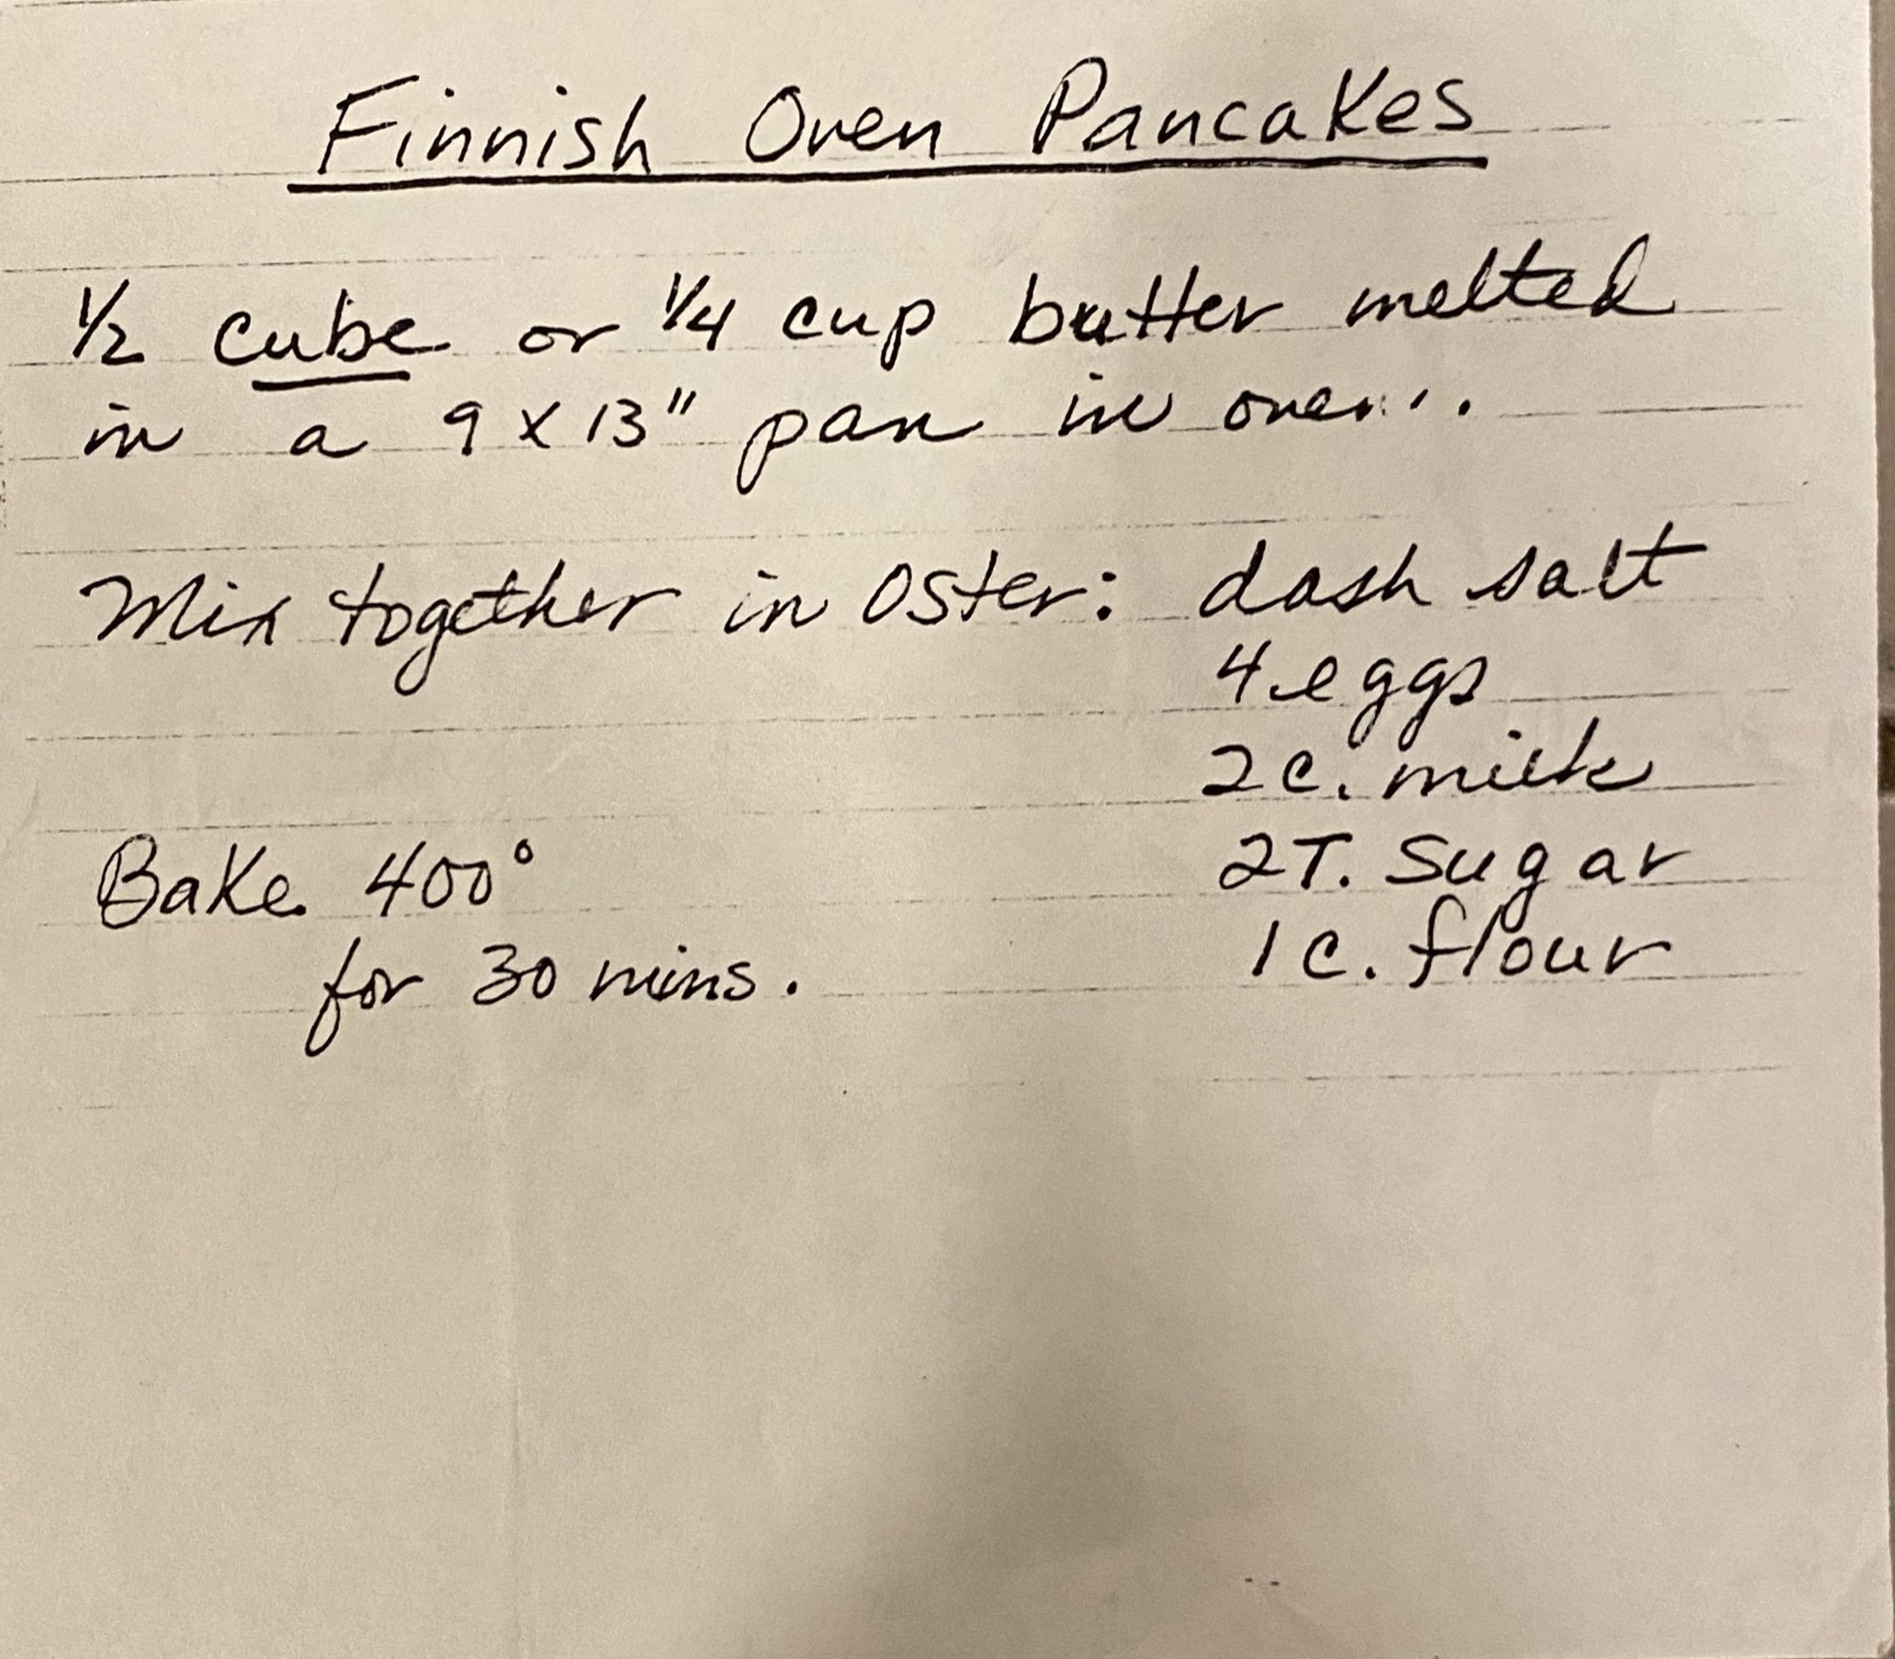 Finnish Oven Pancakes
1/2 cube or 1/4 cup butter melted
in a 9 x 13" pan in oven.
Mix together in Oster: dash salt
4 eggs
2 c. milk
2 T. Sugar
1 c. flour
Bake 400°
for 30 mins.